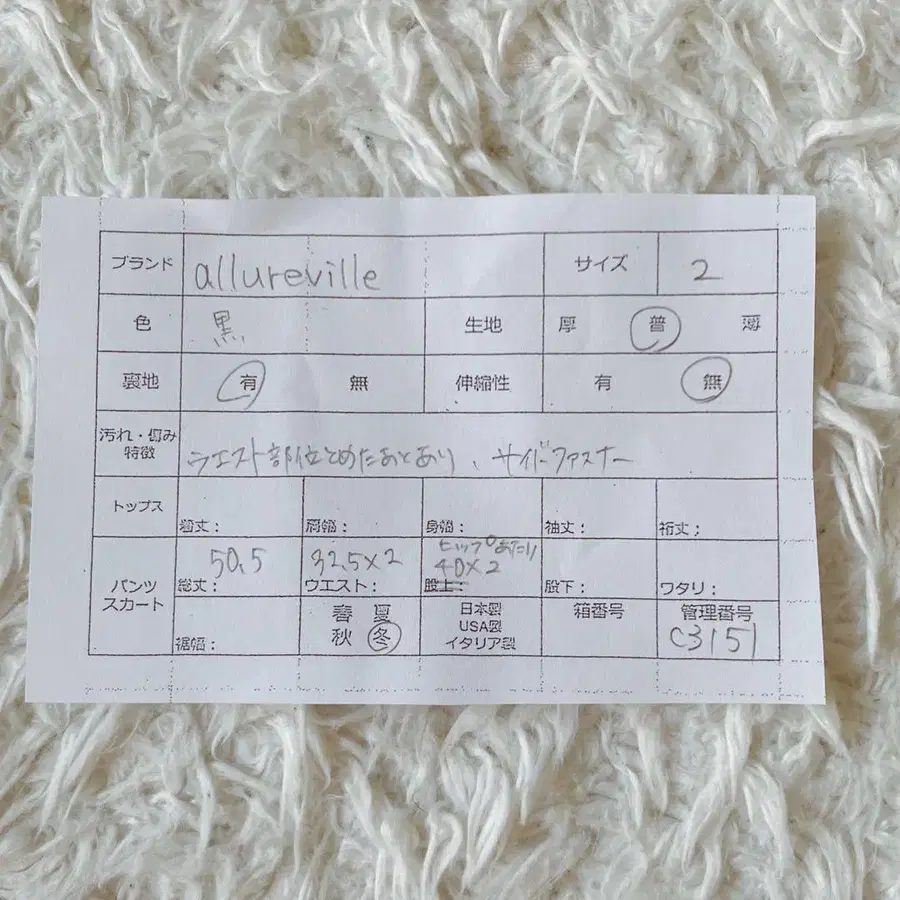 ブランド allureville サイズ 2
色 黒 生地 厚 普 薄
裏地 有 無 伸縮性 有 無
汚れ・傷み
特徴 ウエスト部位とめたあとあり、サイドファスナー
トップス 着丈: 肩幅: 身幅: 袖丈: 裄丈;
パンツ
スカート
50.5 32.5×2 ヒップあたり
40×2
総丈: ウエスト: 股上: 股下: ワタリ:
裾幅: 春 夏
秋 冬
日本製
USA製
イタリア製
箱番号 管理番号
C3151